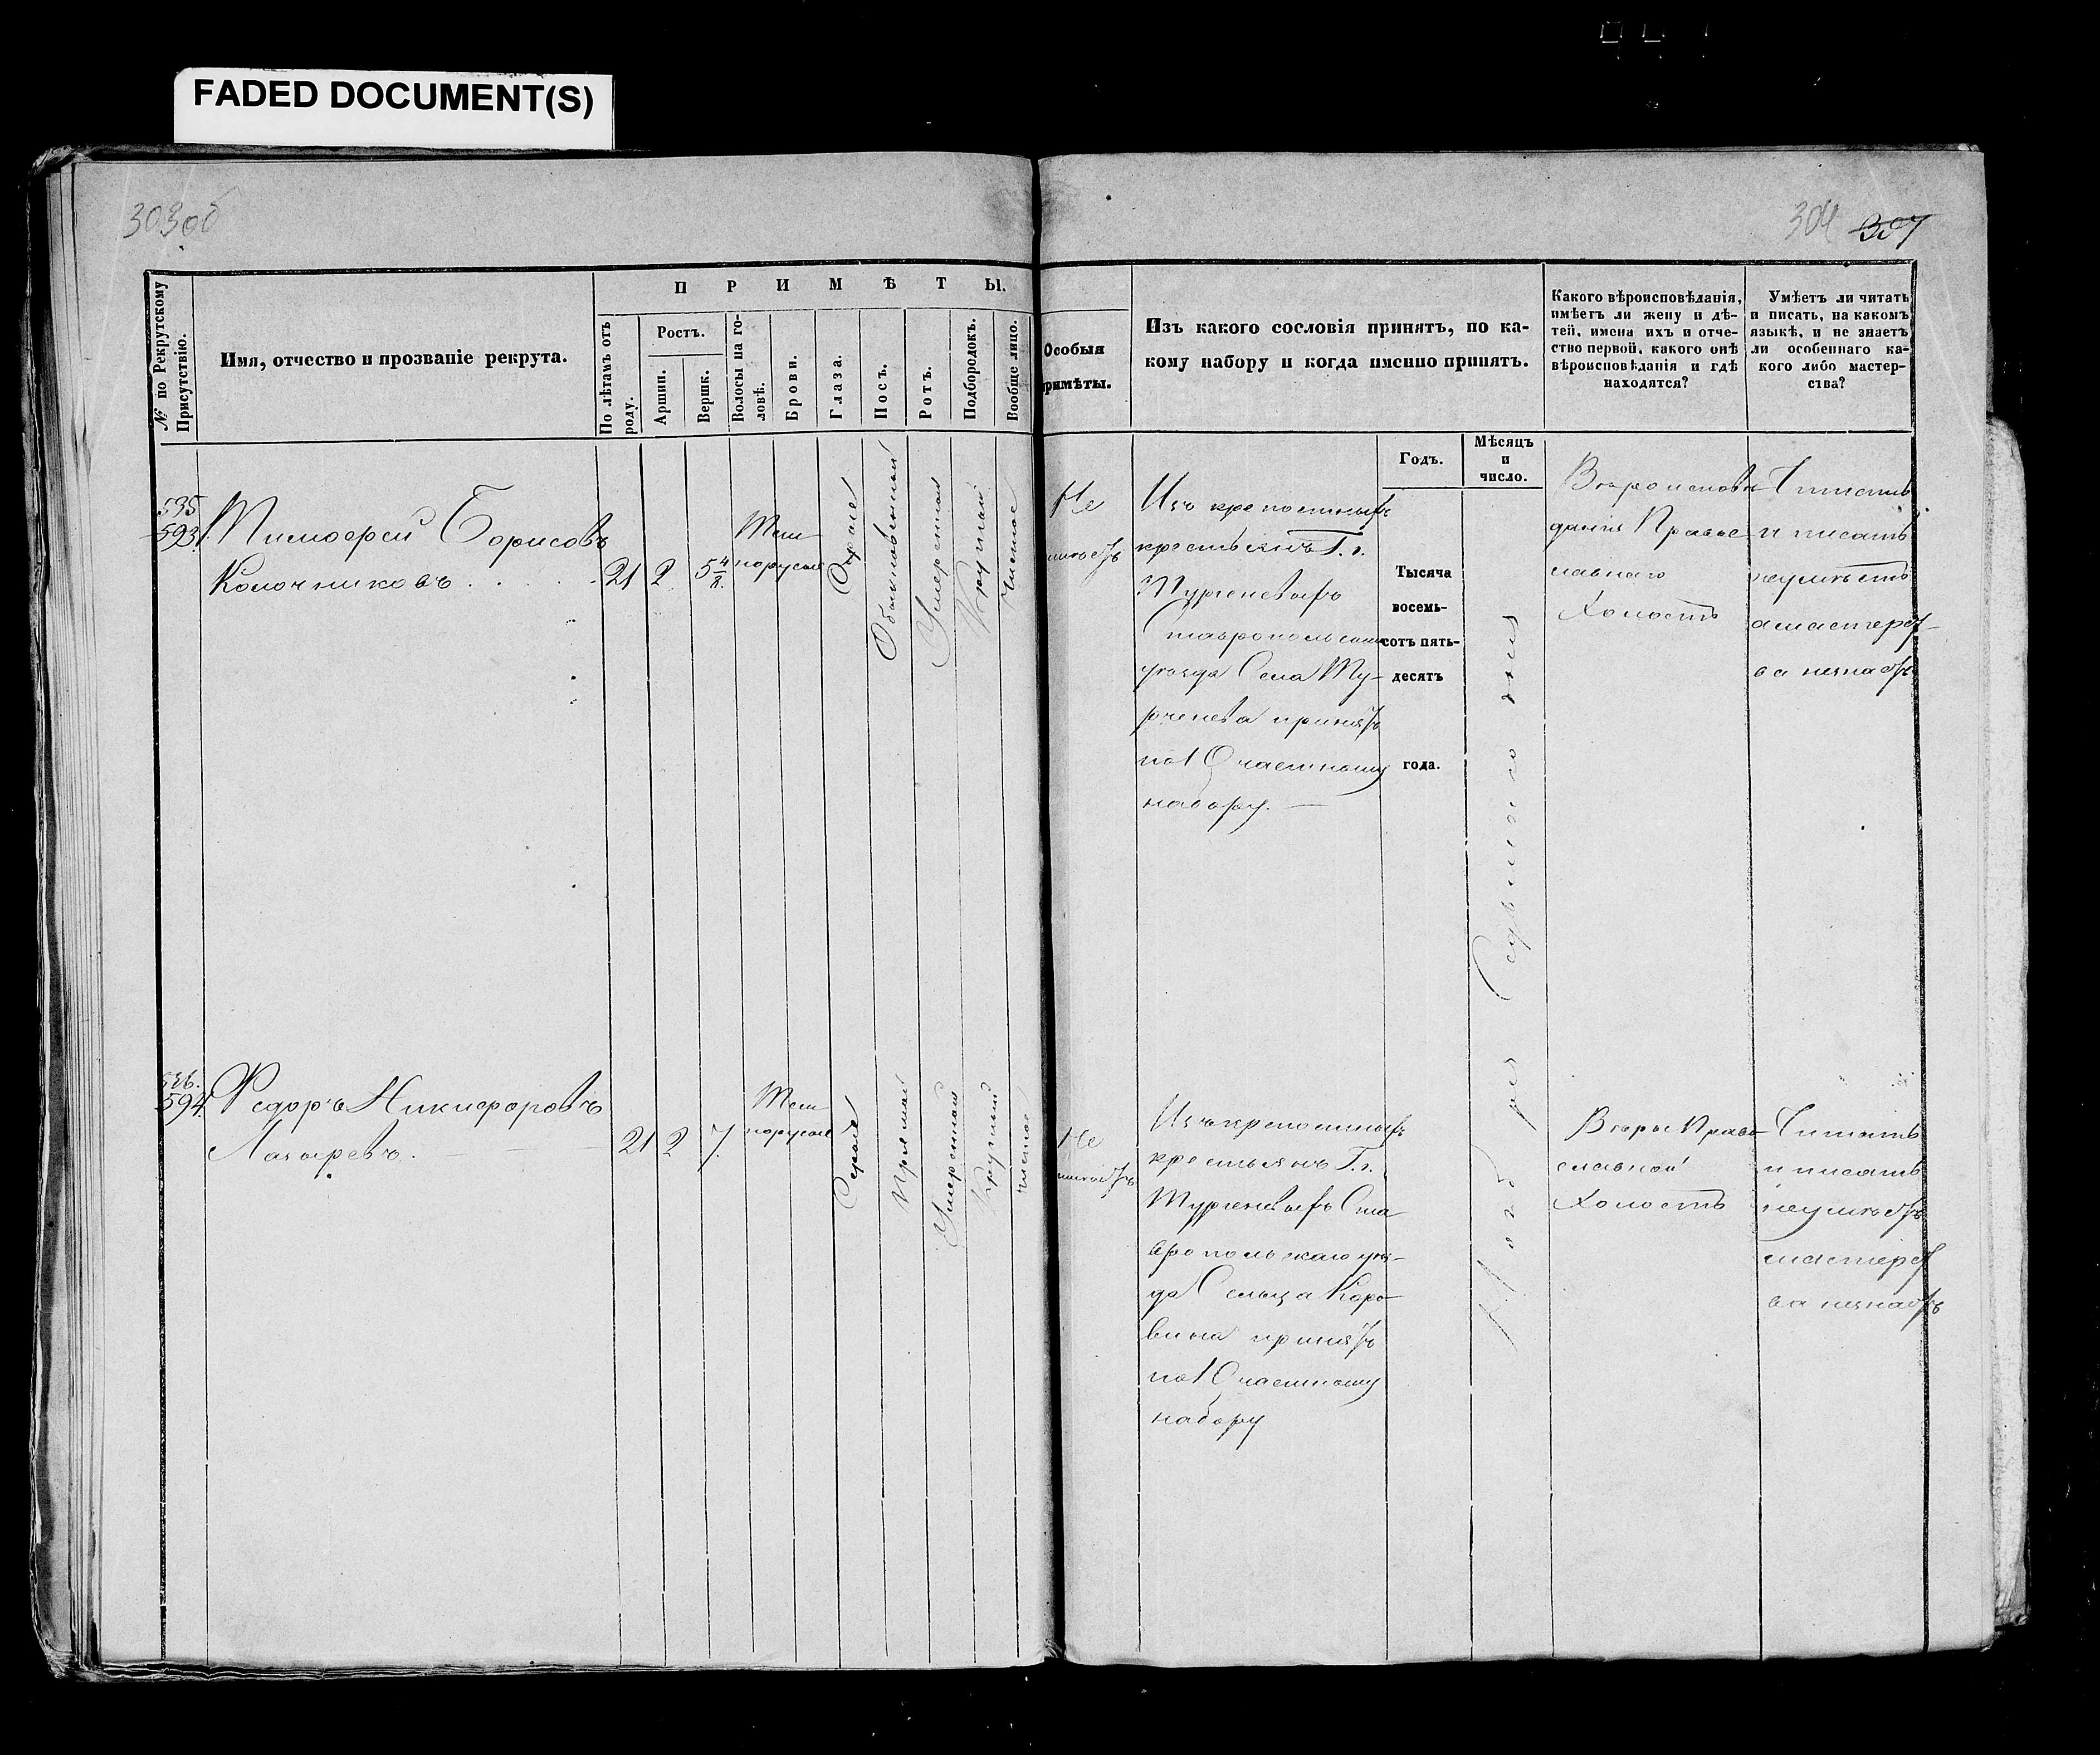 FADED DOCUMENT(S)
303об
304 307
№ по Рекрутскому
Присутствію.
Имя, отчество и прозваніе рекрута.
ПРИМѢТЫ.
По лѣтамъ отъ
роду.
Ростъ.
Аршин.
Вершк.
Волосы на го-
ловѣ.
Брови.
Глаза.
Носъ.
Ротъ.
Подбородокъ.
Вообще лицо.
Особыя
примѣты.
Изъ какого сословія принятъ, по ка-
кому набору и когда именно принятъ.
Какого вѣроисповѣданія,
имѣетъ ли жену и дѣ-
тей, имена ихъ и отче-
ство первой, какого онѣ
вѣроисповѣданія и гдѣ
находятся?
Умѣетъ ли читать
и писать, на какомъ
языкѣ, и не знаетъ
ли особеннаго ка-
кого либо мастер-
ства?
Годъ.
Мѣсяцъ
и
число.
535
593.
Тимофей Борисовъ
Колочниковъ
21 2 5 4/8.
Тем
норусые
Сѣрые
Обыкновенный
Умеренный
Круглый
Чистое
Не
имѣетъ
Изъ крепостныхъ
крестьянъ Г.г.
Тургеневыхъ
Ставропольскаго
уѣзда Села Ту-
ргенева принятъ
по 1 Участному
набору.
Тысяча
восемь-
сотъ пять-
десятъ
года.
Ноября Седьмаго дня
Вѣроисповѣ
данія Правос
лавнаго
Холостъ
Читать
и писать
неумѣетъ
а мастерст-
ва незнаетъ
536.
594.
Федоръ Никифоровъ
Лазаревъ.
21 2 7.
Тем
норусые
Серые
Прямой
Умеренный
Круглый
чистое
Не
имѣетъ
Изъ крепостныхъ
крестьянъ Г.г.
Тургеневыхъ Ста
вропольскаго уѣз-
да Сельца Коро
вина принятъ
по 1 Участному
набору
Вѣры Право
славной
Холостъ
Читать
и писать
неумѣетъ
мастерст
ва незнаетъ